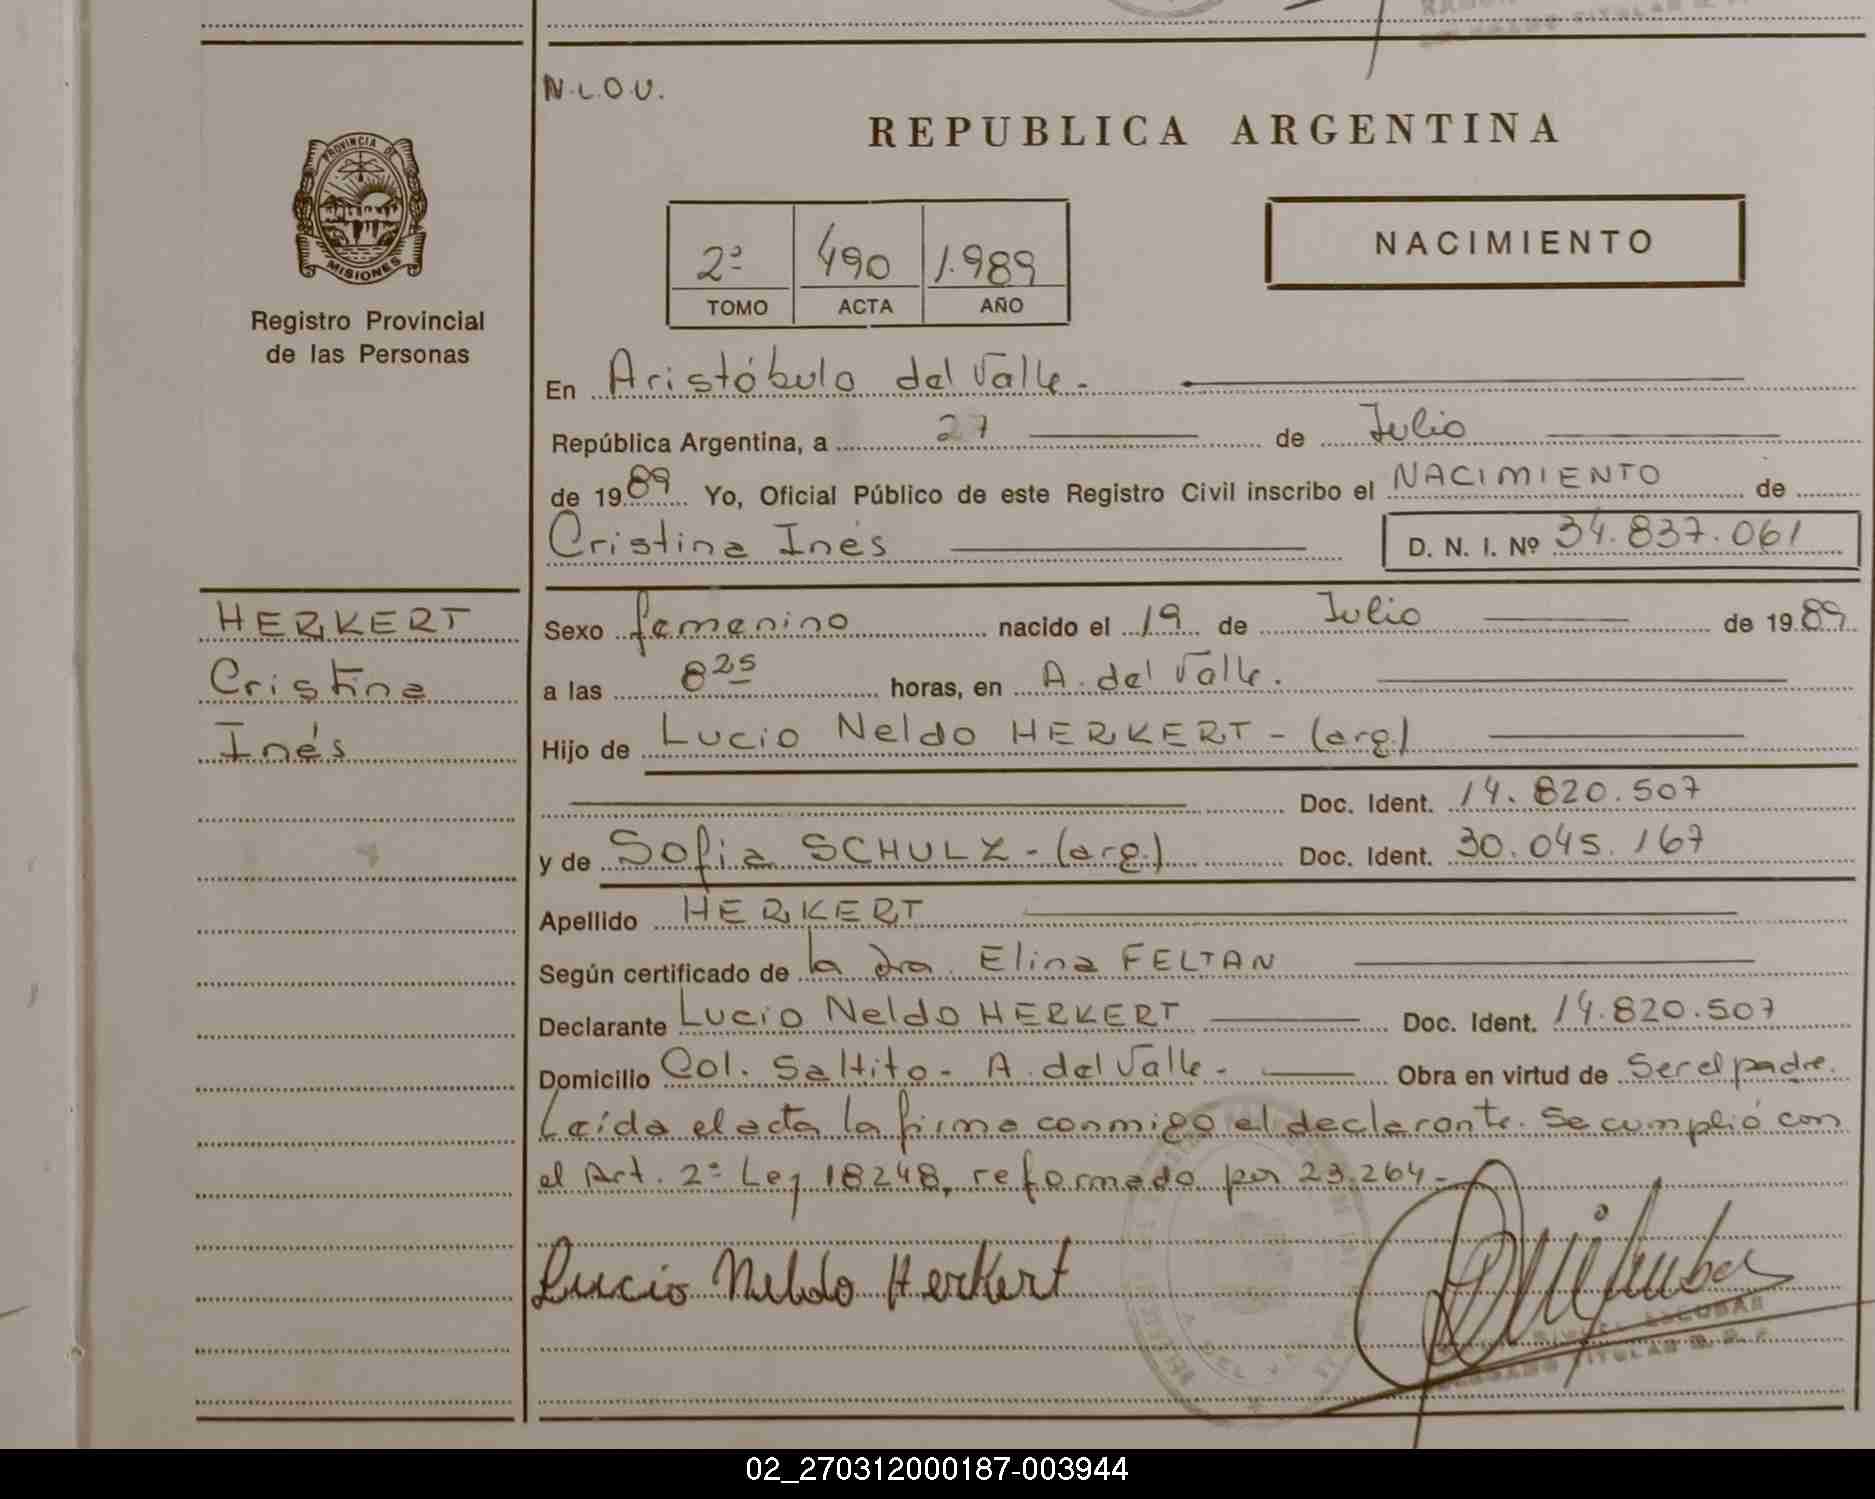 N.L.O.U.
REPUBLICA ARGENTINA
PROVINCIA DE
MISIONES
Registro Provincial
de las Personas
2º 490 1.989
TOMO ACTA AÑO
NACIMIENTO
En Aristóbulo del Valle.-
República Argentina, a 27 de Julio
de 1989 Yo, Oficial Público de este Registro Civil inscribo el NACIMIENTO de
Cristina Inés D. N. I. Nº 34.837.061
HERKERT
Cristina
Inés
Sexo femenino nacido el 19 de Julio de 1989
a las 8 25 horas, en A. del Valle.
Hijo de Lucio Neldo HERKERT - (arg.)
Doc. Ident. 14.820.507
y de Sofia SCHULZ - (arg.) Doc. Ident. 30.045.167
Apellido HERKERT
Según certificado de la Dra. Elina FELTAN
Declarante Lucio Neldo HERKERT Doc. Ident. 14.820.507
Domicilio Col. Saltito - A. del Valle - Obra en virtud de Ser el padre.
Leída el acta la firma conmigo el declarante. Se cumplió con
el Art. 2º Ley 18248, reformado por 23.264.-
Lucio Neldo Herkert
ESCOBAR
TITULAR
02_270312000187-003944